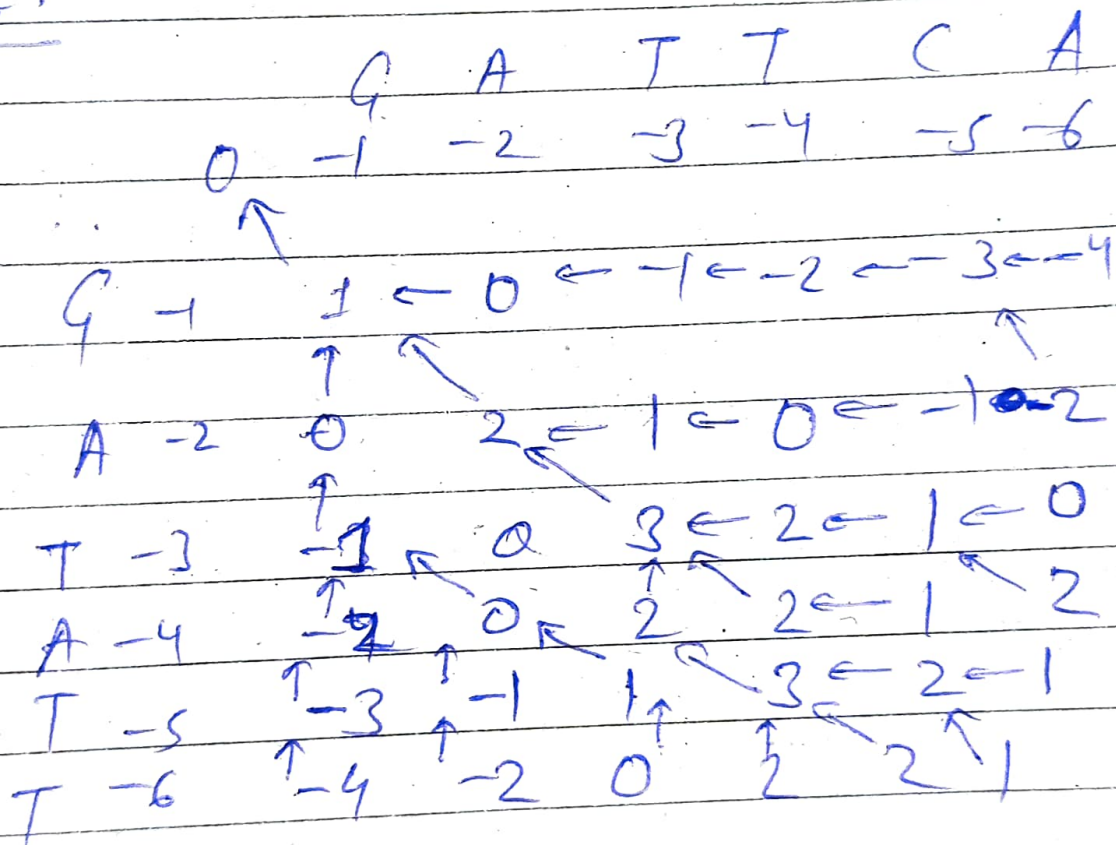 G A T T C A
0 -1 -2 -3 -4 -5 -6
↖
G -1 1 ← 0 ← -1 ← -2 ← -3 ← -4
↑ ↖ ↖
A -2 0 2 ← 1 ← 0 ← -1 -2
↑ ↖
T -3 -1 0 3 ← 2 ← 1 ← 0
↑ ↖ ↑ ↖ ↖
A -4 -2 0 2 2 ← 1 2
↑ ↑ ↖ ↖
T -5 -3 -1 1 3 ← 2 ← 1
↑ ↑ ↑ ↑ ↖ ↖
T -6 -4 -2 0 2 2 1